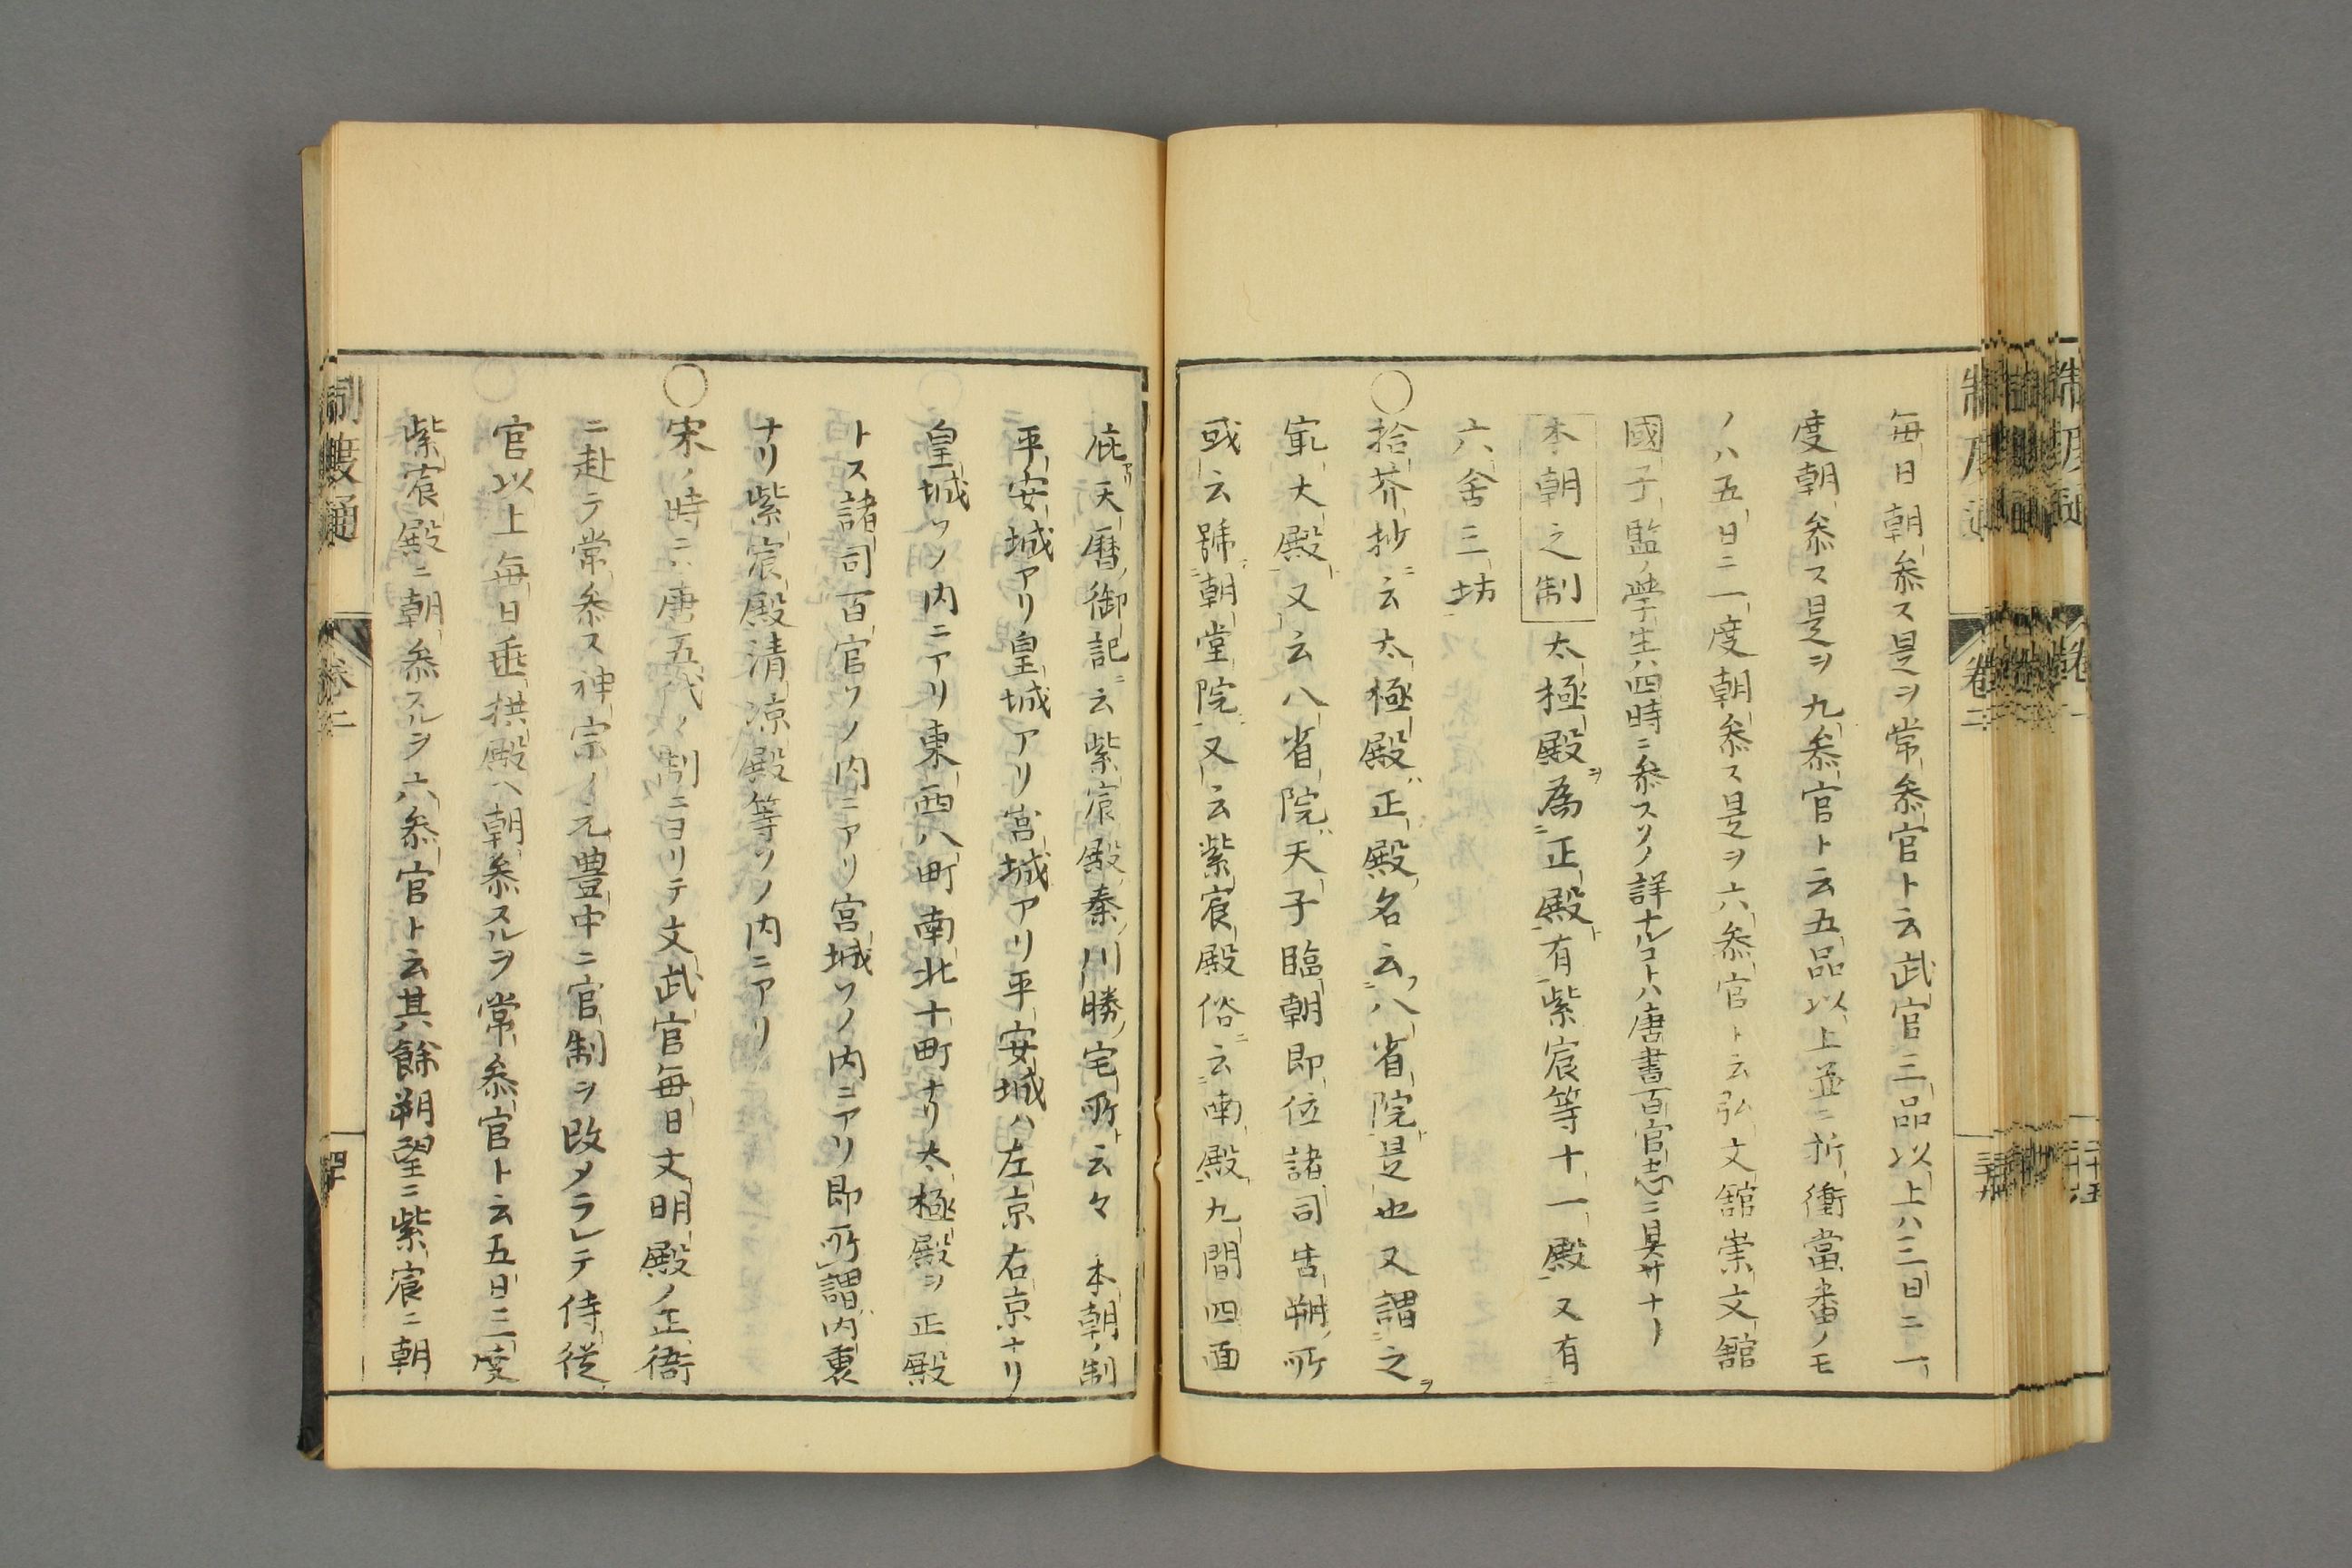 毎日朝叅ス是ヲ常叅官ト云武官三品以上ハ三日ニ一
度朝叅ス是ヲ九叅官ト云五品以上並ニ折衝當番ノモ
ノハ五日ニ一度朝叅ス是ヲ六叅官ト云弘文館崇文館
國子監ノ學生ハ四時ニ叅スソノ詳ナルコトハ唐書百官志ニ具サナリ
本朝之制 太極殿ヲ為ニ正殿ト有紫宸等十一殿又有
六舍三坊
○拾芥抄ニ云太極殿ハ正殿名云フ八省院ト是也又謂之ヲ
寂大殿又云八省院ハ天子臨朝即位諸司告朔ノ所
或云號朝堂院又云紫宸殿俗ニ云南殿九間四面
庇アリ天暦御記ニ云紫宸殿秦ノ川勝ノ宅所ト云々 本朝ノ制
平安城アリ皇城アリ宮城アリ平安城ハ左京右京ナリ
皇城ソノ内ニアリ東西八町南北十町ナリ太極殿ヲ正殿
トス諸司百官ソノ内ニアリ宮城ソノ内ニアリ即所謂内裏
ナリ紫宸殿清凉殿等ソノ内ニアリ
○宋ノ時ニハ唐五代ノ制ニヨリテ文武官毎日文明殿ノ正衙
ニ赴テ常叅ス神宗ノ元豊中ニ官制ヲ改メラレテ侍從
官以上毎日垂拱殿ヘ朝叅スルヲ常叅官ト云五日ニ一度
紫宸殿ニ朝叅スルヲ六叅官ト云其餘朔望ニ紫宸ニ朝
制度通
卷二